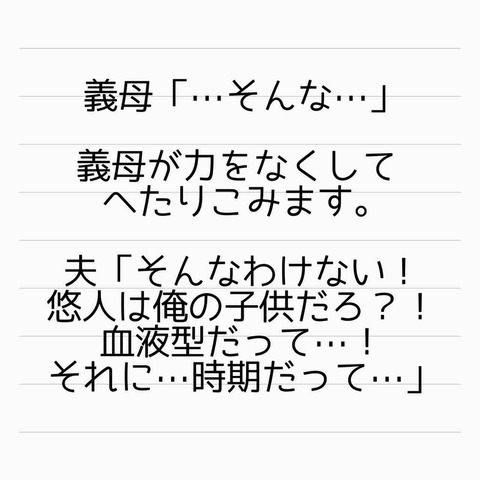 義母「…そんな…」
義母が力をなくして
へたりこみます。
夫「そんなわけない！
悠人は俺の子供だろ？！
血液型だって…！
それに…時期だって…」